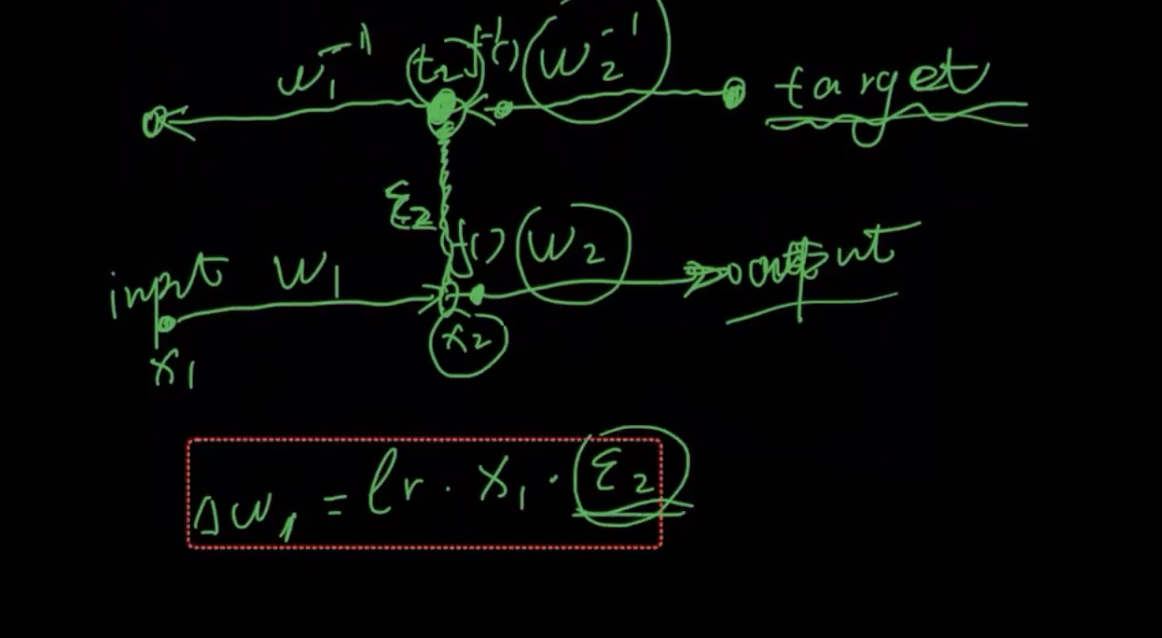 w₁⁻¹ (t₂) f⁻¹() w₂⁻¹ target
ε₂
input w₁ f() w₂ output
x₁ x₂
Δw₁ = lr · x₁ · ε₂